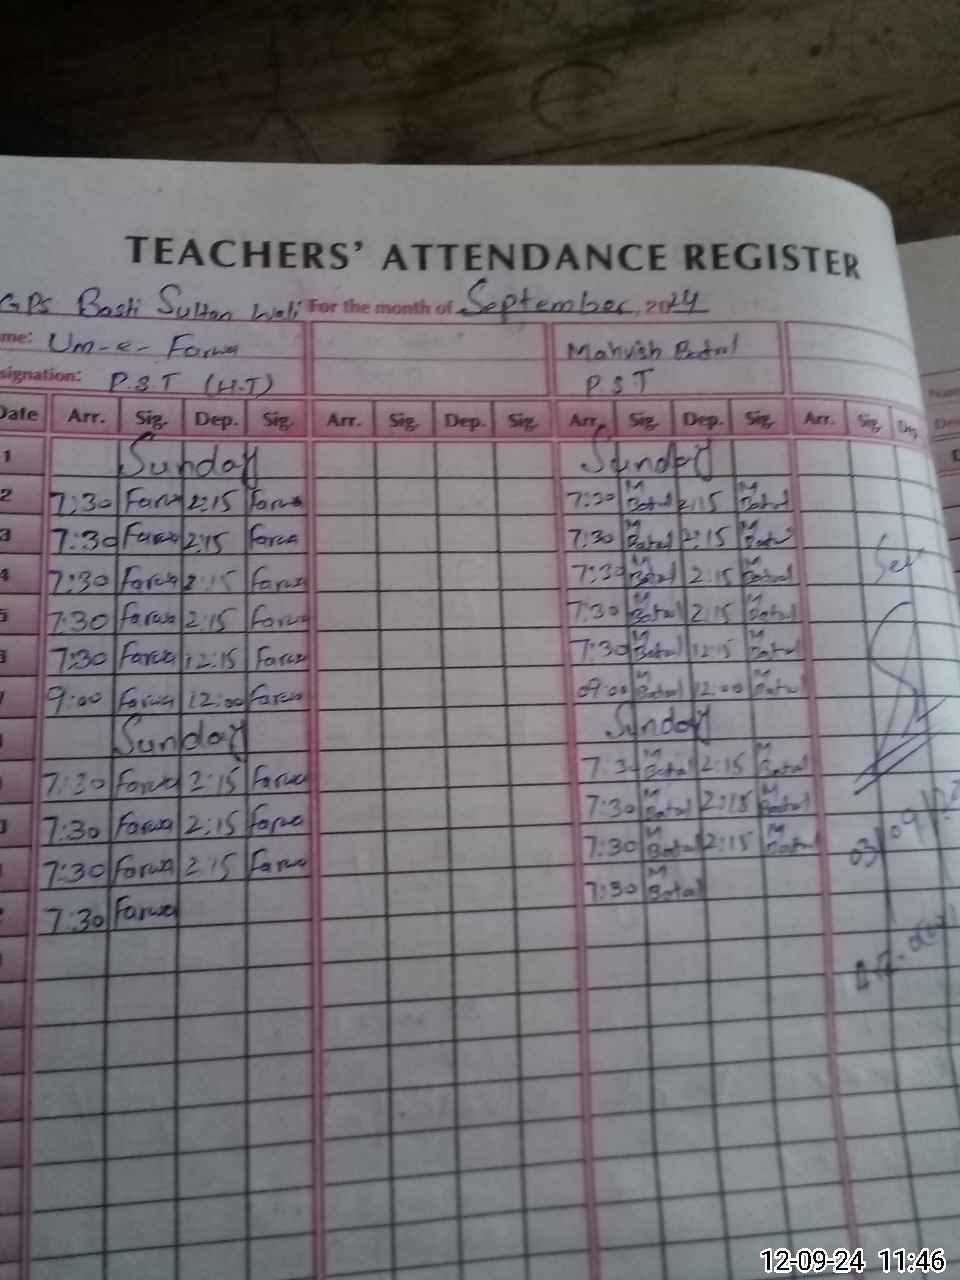 TEACHERS' ATTENDANCE REGISTER
GPS Basti Sultan Wali For the month of September, 2024
me: Um-e-Farwa Mahvish Batool
signation: P.S.T (H.T) P.S.T
Date Arr. Sig. Dep. Sig. Arr. Sig. Dep. Sig. Arr. Sig. Dep. Sig. Arr. Sig. Dep.
1 Sunday Sunday
2 7:30 Farwa 2:15 Farwa 7:30 M Batul 2:15 M Batul
3 7:30 Farwa 2:15 Farwa 7:30 M Batul 2:15 M Batul
4 7:30 Farwa 2:15 Farwa 7:30 M Batul 2:15 M Batul
5 7:30 Farwa 2:15 Farwa 7:30 M Batul 2:15 M Batul
7:30 Farwa 12:15 Farwa 7:30 M Batul 12:15 M Batul
9:00 Farwa 12:00 Farwa 09:00 M Batul 12:00 M Batul
Sunday Sunday
7:30 Farwa 2:15 Farwa 7:30 M Batul 2:15 M Batul
7:30 Farwa 2:15 Farwa 7:30 M Batul 2:15 M Batul
7:30 Farwa 2:15 Farwa 7:30 M Batul 2:15 M Batul
7:30 Farwa 7:30 M Batul
12-09-24 11:46